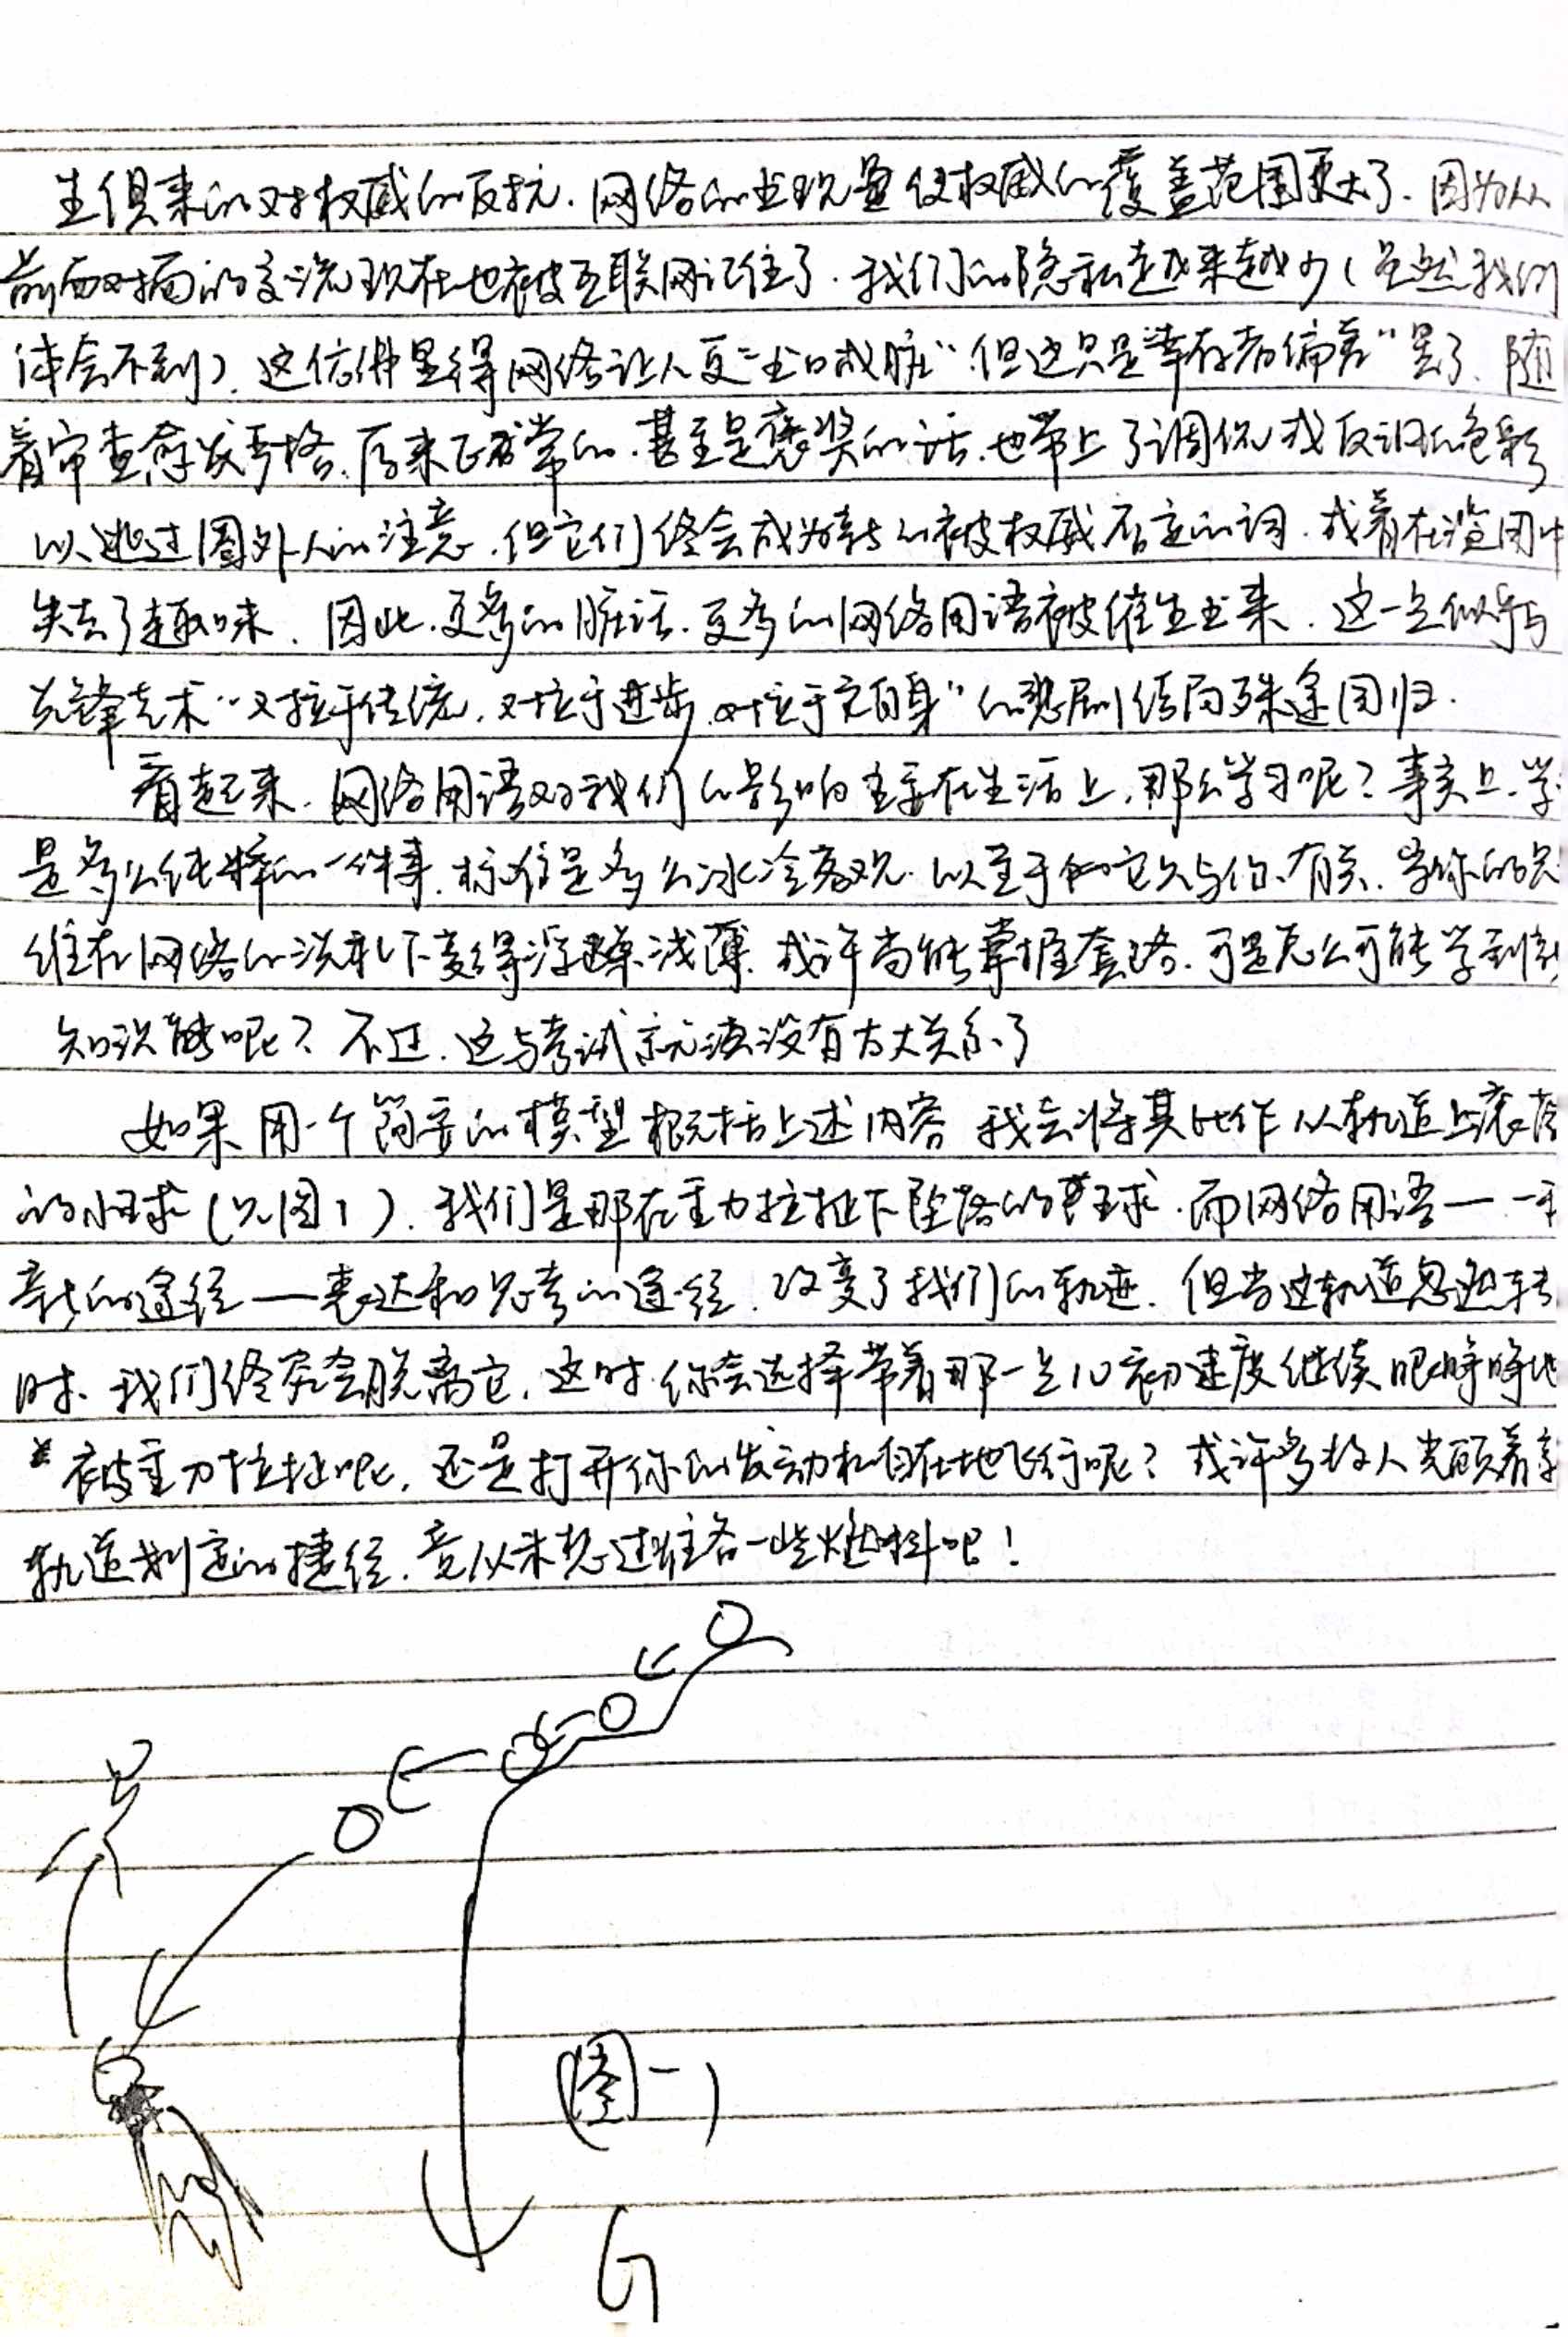 生俱来的对权威的反抗.网络的出现使权威的覆盖范围更大了.因为从
前面对面的交流现在也被互联网记住了.我们的隐私越来越少(虽然我们
体会不到).这仿佛显得网络让人更“出口成脏”.但这只是“幸存者偏差”罢了.随
着审查愈发严格.原来正常的.甚至是褒奖的话.也带上了调侃或反讽的色彩
以逃过圈外人的注意.但它们终会成为新的被权威否定的词.或者在滥用中
失去了趣味.因此.更多的脏话.更多的网络用语被催生出来.这一点似乎与
先锋艺术“对抗于传统,对抗于进步,对抗于自身”的悲剧结局殊途同归.
看起来.网络用语对我们的影响主要在生活上,那么学习呢?事实上.学
是多么纯粹的一件事.标准是多么冰冷客观.以至于它只与你有关.当你的思
维在网络的洗礼下变得浮躁浅薄.或许尚能掌握套路.可是怎么可能学到
知识呢?不过.这与考试就没有太大关系了
如果用一个简要的模型概括上述内容 我会将其比作从轨道上滚落
的小球(见图1).我们是那在重力拉扯下坠落的球.而网络用语——
新的途径——表达和思考的途径.改变了我们的轨迹.但当这轨道忽然转
时.我们终究会脱离它.这时.你会选择带着那一点儿初速度继续眼睁睁地
被重力拉扯呢,还是打开你的发动机自在地飞行呢?或许多数人光顾着
轨道划定的捷径.竟从未想过准备一些燃料吧!
(图一)
G